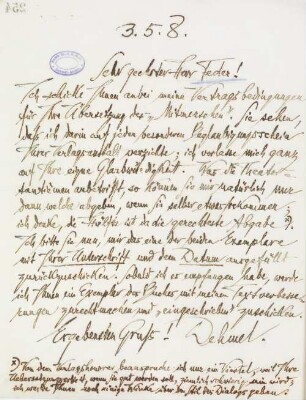 3.5.8.
Sehr geehrter Herr Feder!
Ich schicke Ihnen anbei meine Vertragsbedingungen
für Ihre Übersetzung des „Mitmenschen". Sie sehen,
dass ich darin auf jeden besonderen Beglaubigungsschein
Ihrer Verlagsanstalt verzichte; ich verlasse mich ganz
auf Ihre eigne Glaubwürdigkeit. Was die Theater-
tantièmen anbetrifft, so können Sie mir natürlich nur
dann welche abgeben, wenn Sie selber etwas bekommen;
ich denke, die Hälfte ist da die gerechteste Abgabe x).
Ich bitte Sie nun, mir das eine der beiden Exemplare
mit Ihrer Unterschrift und dem Datum ausgefüllt
zurückzuschicken. Sobald ich es empfangen habe, werde
ich Ihnen ein Exemplar des Buches mit meinen Textverbesse-
rungen zurechtmachen und „eingeschrieben" zuschicken.
Ergebensten Gruß! Dehmel.
x) Von dem Verlagshonorar beanspruche ich nur ein Viertel, weil Ihre
Uebersetzungsarbeit, wenn sie gut werden soll, ziemlich schwierig sein wird;
ich werde Ihnen noch einige Winke über den Stil des Dialogs geben.